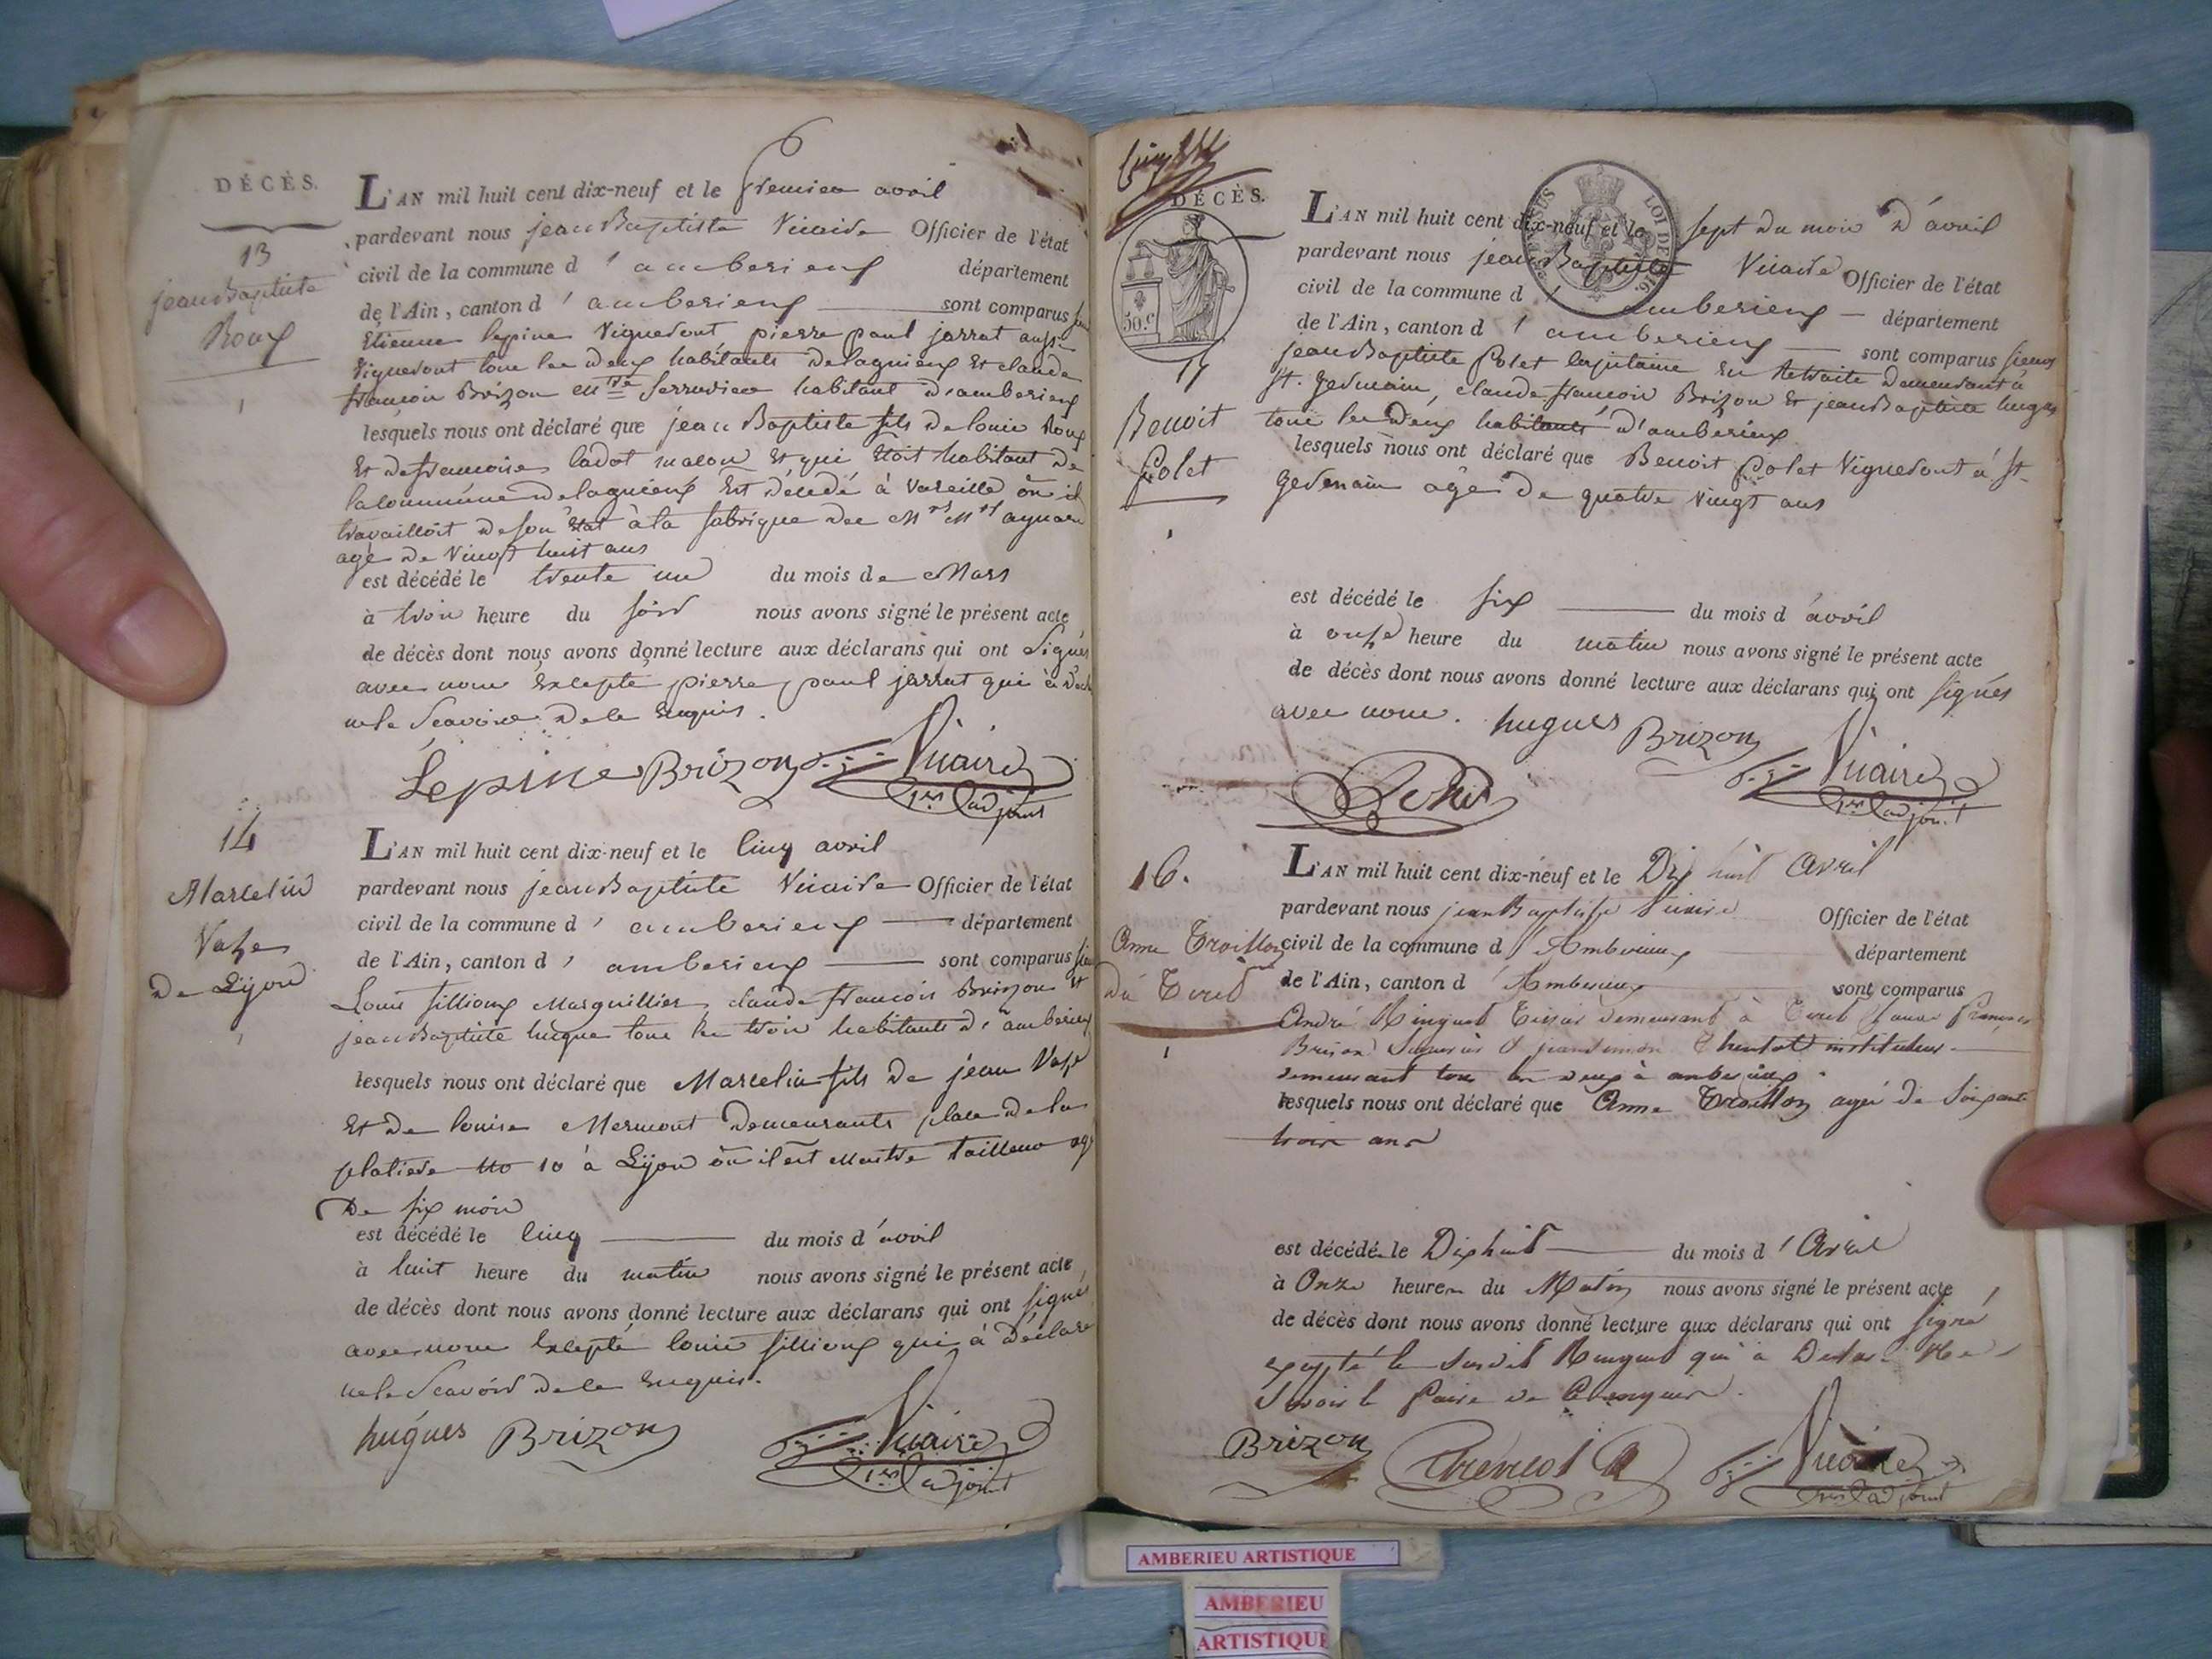 DÉCÈS.
13
jean Baptiste
Roux
L'AN mil huit cent dix-neuf et le premier avril
pardevant nous jean Baptiste Vicaire Officier de l'état
civil de la commune d' amberieux département
de l'Ain, canton d' amberieux sont comparus
Etienne lepine Vigneront pierre paul jarrat aussi
Vigneront tous les deux habitants delagnieux Et claude
francois Brizon Me Serrurier habitant d'amberieux
lesquels nous ont déclaré que jean Baptiste fils de louis Roux
Et defrancoise Cadot macon Et qui Etoit habitant de
la commune delagnieux Est décédé à Vareille ou il
travailloit deson Etat à la fabrique de Mrs
agé de Vingt huit ans
est décédé le trente un du mois de Mars
à trois heure du soir nous avons signé le présent acte
de décès dont nous avons donné lecture aux déclarans qui ont Signés
avec nous Excepté pierre paul jarrat qui à
ne le Scavoire de le Enquis.
Lepine Brizon Vicaire
1er adjoint
14
Marcelin
Vaze
De Lyon
L'AN mil huit cent dix-neuf et le cinq avril
pardevant nous jean Baptiste Vicaire Officier de l'état
civil de la commune d' amberieux département
de l'Ain, canton d' amberieux sont comparus
Louis fillioux Marguillier, claude francois Brizon Et
jean Baptiste hugue tous les trois habitants d'amberieux
lesquels nous ont déclaré que Marcelin fils de jean Vaze
Et de louise Mermont Demeurants place de la
platiere No 10 à Lyon où il est Maitre tailleur
De six mois
est décédé le cinq du mois d'avril
à huit heure du matin nous avons signé le présent acte,
de décès dont nous avons donné lecture aux déclarans qui ont signés
avec nous Excepté louis fillioux qui à déclaré
ne le Scavoir de le Enquis.
hugues Brizon Vicaire
1er adjoint
DÉCÈS.
LOI DE 1816
50.c
Benoit
Polet
L'AN mil huit cent dix-neuf et le sept du mois d'avril
pardevant nous jean Baptiste Vicaire Officier de l'état
civil de la commune d' amberieux département
de l'Ain, canton d' amberieux sont comparus Sieurs
jean Baptiste Polet Capitaine En Retraite demeurant à
St. Germain, claude francois Brizon Et jean Baptiste hugues
tous les deux habitants d'amberieux
lesquels nous ont déclaré que Benoit Polet Vigneront à St
Germain agé de quatre vingt ans
est décédé le six du mois d'avril
à onze heure du matin nous avons signé le présent acte
de décès dont nous avons donné lecture aux déclarans qui ont signés
avec nous. hugues Brizon Vicaire
1er adjoint
16.
Anne Troillon
Du Tiret
L'AN mil huit cent dix-neuf et le Dix huit Avril
pardevant nous jean Baptiste Vicaire Officier de l'état
civil de la commune d'Amberieux département
de l'Ain, canton d'Amberieux sont comparus
André demeurant à Tiret
Brison Serrurier & instituteur
demeurant tous les deux à amberieux
lesquels nous ont déclaré que Anne Troillon agée de Soixante
trois ans
est décédé le Dix huit du mois d'Avril
à Onze heures du Matin nous avons signé le présent acte,
de décès dont nous avons donné lecture aux déclarans qui ont signé
excepté le susdit qui a
Savoir le faire de
Brizon Vicaire
1er adjoint
AMBERIEU ARTISTIQUE
AMBERIEU
ARTISTIQUE